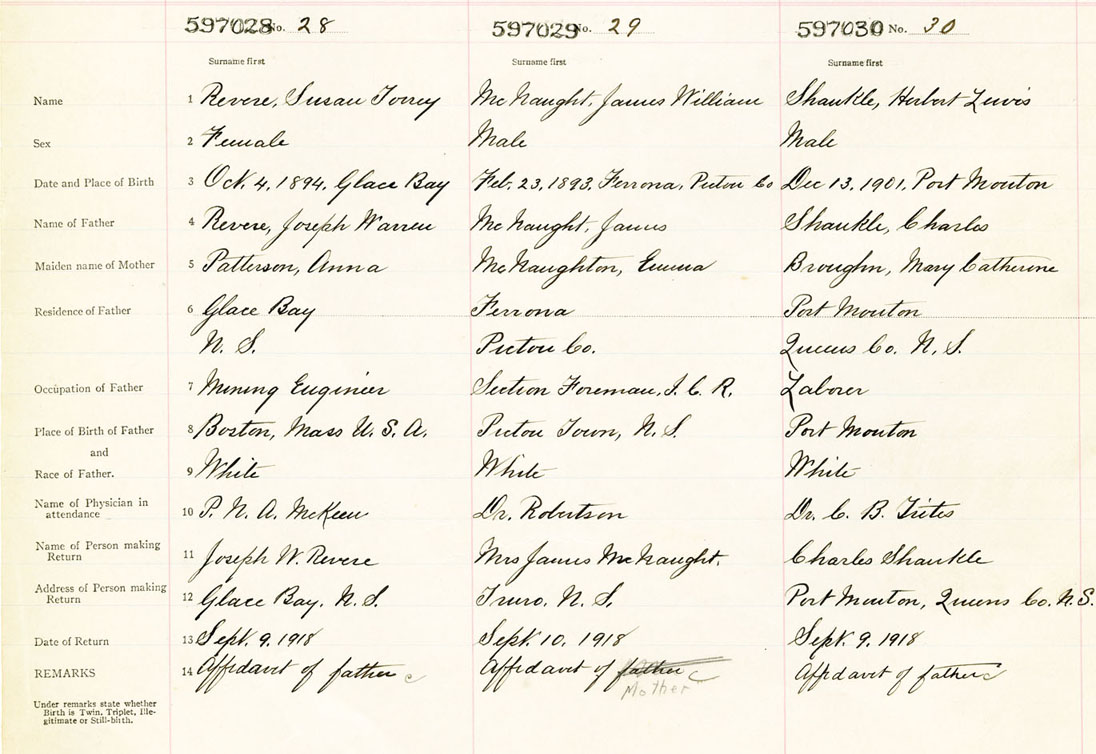 597028 No. 28 597029 No. 29 597030 No. 30
Surname first Surname first Surname first
Name 1 Revere, Susan Torrey McNaught, James William Shankle, Herbert Lewis
Sex 2 Female Male Male
Date and Place of Birth 3 Oct. 4, 1894, Glace Bay Feb. 23, 1893, Ferrona, Pictou Co Dec 13, 1901, Port Mouton
Name of Father 4 Revere, Joseph Warren McNaught, James Shankle, Charles
Maiden name of Mother 5 Patterson, Anna McNaughton, Emma Mary Catherine
Residence of Father 6 Glace Bay Ferrona Port Mouton
N. S. Pictou Co. Queens Co. N. S.
Occupation of Father 7 Mining Engineer Section Foreman, I. C. R. Laborer
Place of Birth of Father 8 Boston, Mass U. S. A. Pictou Town, N. S. Port Mouton
and
Race of Father. 9 White White White
Name of Physician in
attendance 10 P. N. A. McKeen Dr. Robertson Dr. C. B. Trites
Name of Person making
Return 11 Joseph W. Revere Mrs James McNaught. Charles Shankle
Address of Person making
Return 12 Glace Bay, N. S. Truro, N. S. Port Mouton, Queens Co. N. S.
Date of Return 13 Sept. 9, 1918 Sept. 10, 1918 Sept. 9, 1918
REMARKS 14 Affidavit of father c Affidavit of father c Affidavit of father c
Mother
Under remarks state whether
Birth is Twin, Triplet, Ille-
gitimate or Still-birth.